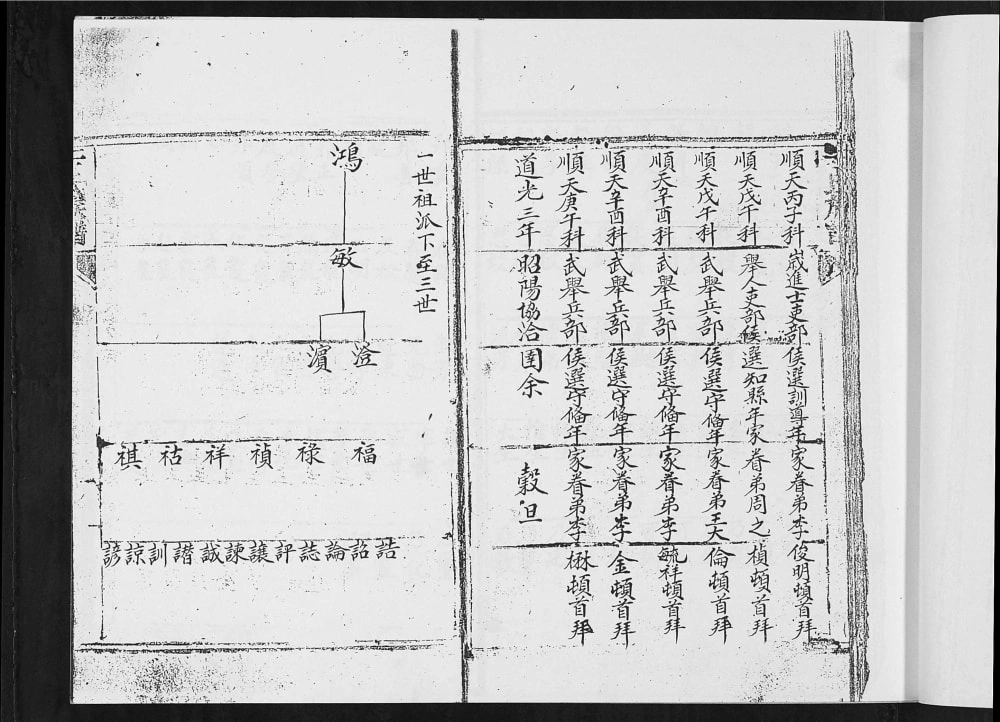 順天丙子科歲進士吏部候選訓導年家眷弟李俊明頓首拜
順天戊午科舉人吏部候選知縣年家眷弟周之楨頓首拜
順天戊午科武舉兵部候選守備年家眷弟王大倫頓首拜
順天辛酉科武舉兵部候選守備年家眷弟李毓祥頓首拜
順天辛酉科武舉兵部候選守備年家眷弟李金頓首拜
順天庚午科武舉兵部候選守備年家眷弟李楙頓首拜
道光三年昭陽協洽圉余穀旦
一世祖派下至三世
鴻
敏
澄濵
福祿禎祥祜祺
誥詔論誌評讓諫誠譛訓諒諺